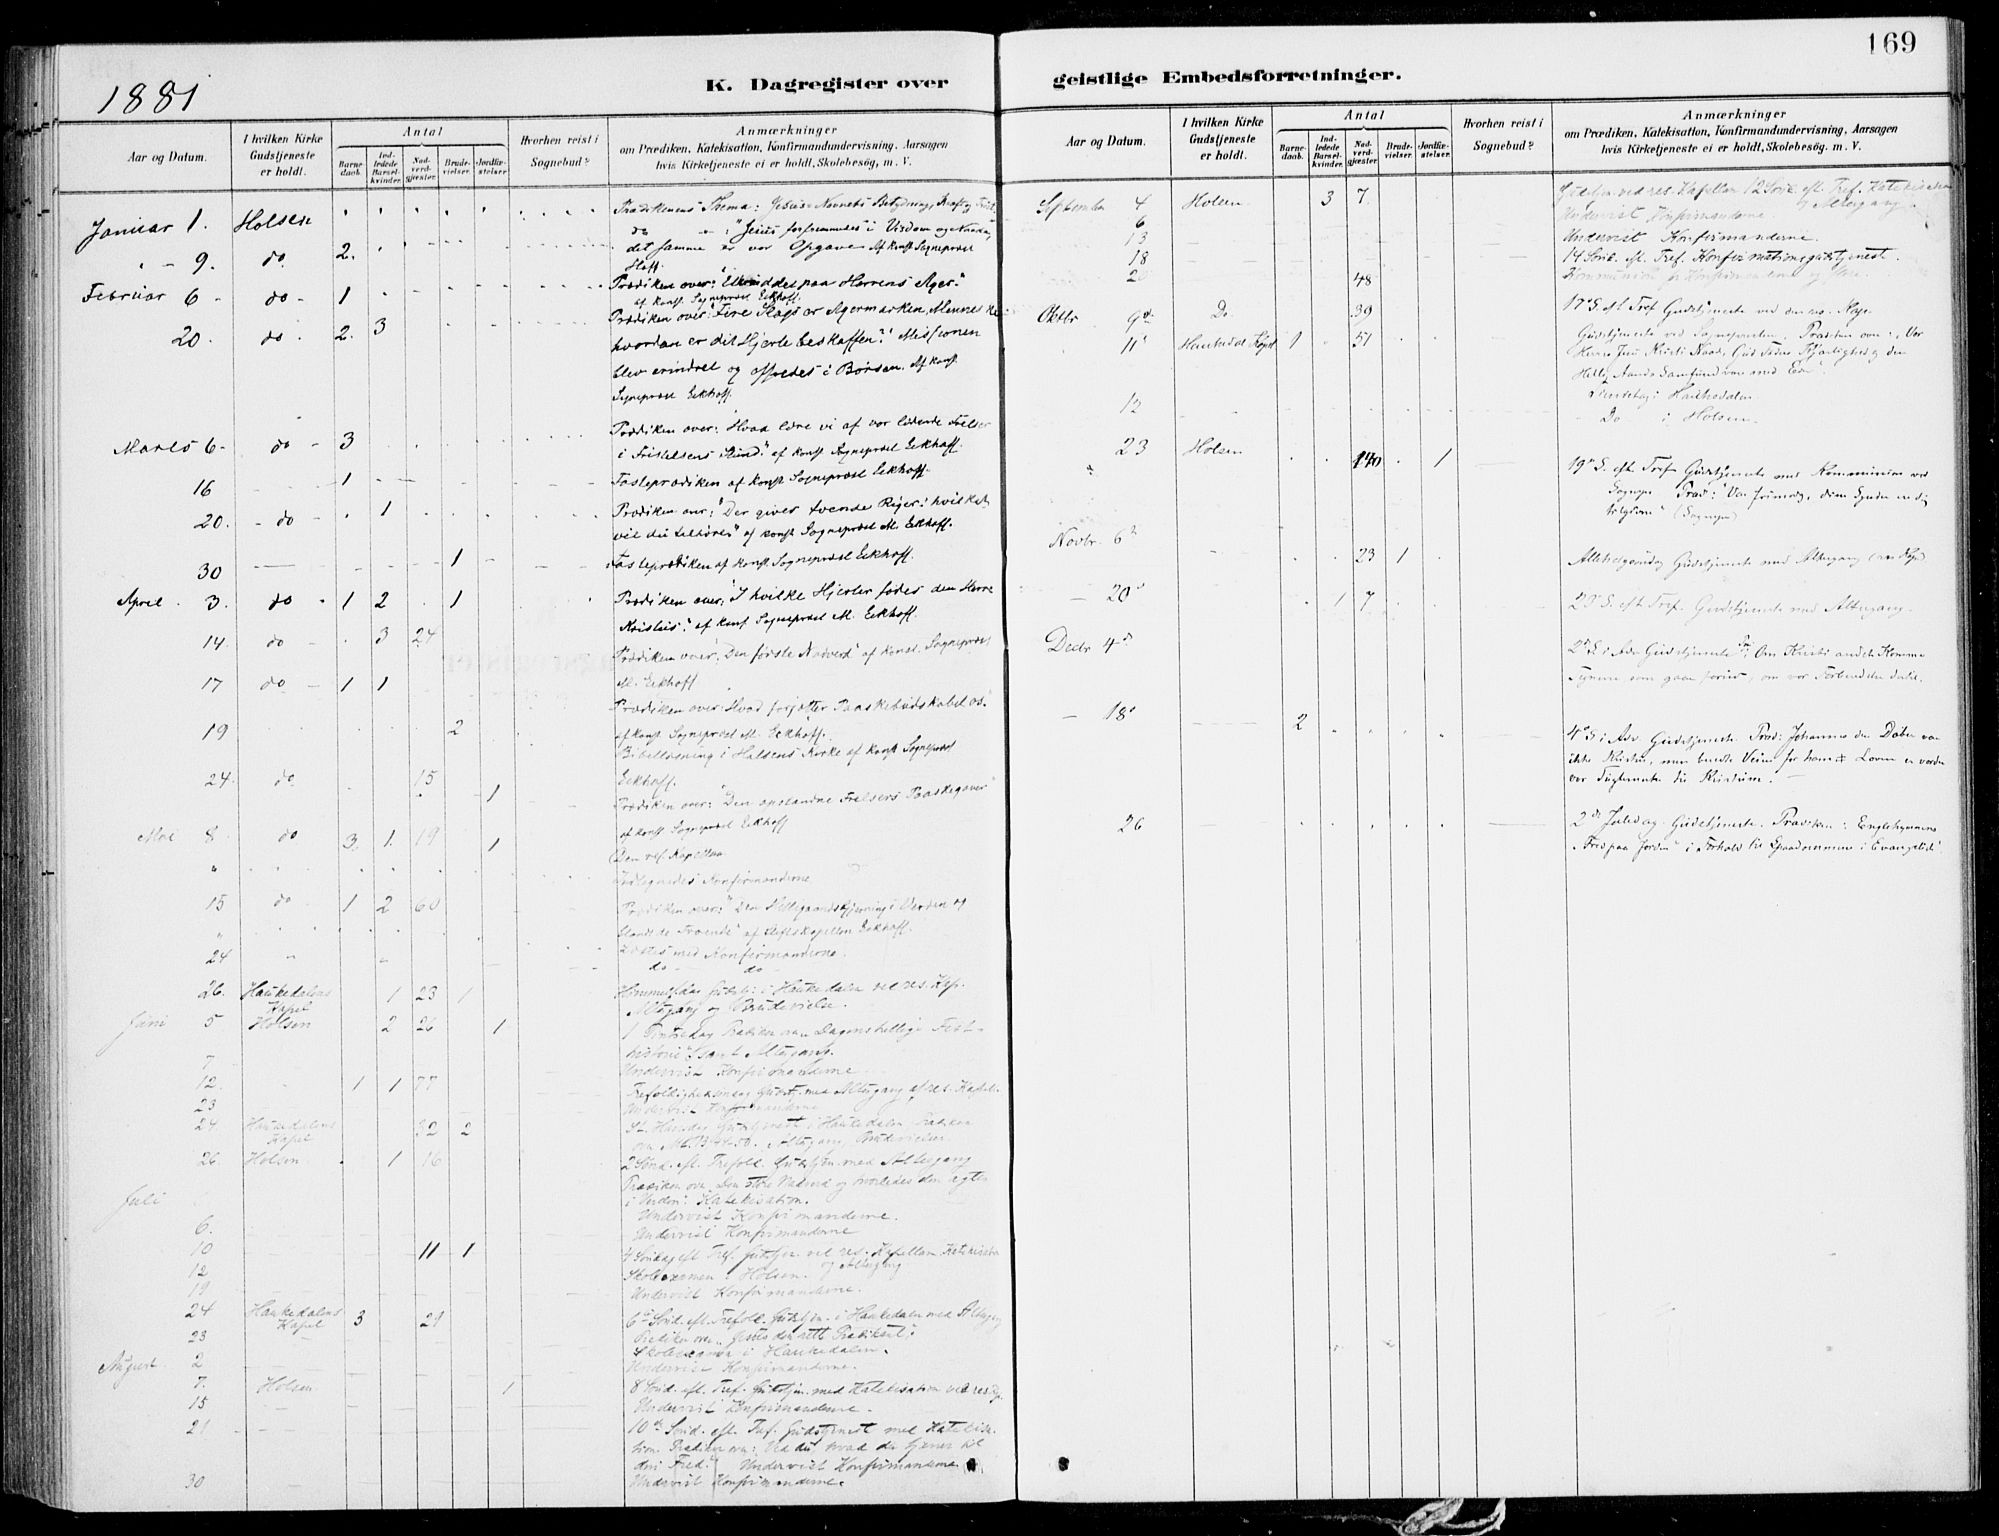 169
1881
K. Dagregister over geistlige Embedsforretninger.
Aar og Datum. I hvilken Kirke Gudstjeneste er holdt. Antal Hvorhen reist i Sognebud? Anmærkninger
Barnedaab. Indledede Barselkvinder. Nadverdgjæster. Brudevielser. Jordfæstelser.
om Prædiken, Katekisation, Konfirmandundervisning, Aarsagen
hvis Kirketjeneste ei er holdt, Skolebesøg, m. V.
Januar 1. Holsen Prædikenens Thema: Jesus-Navnets Betydning, Kraft og
" - 9. do 2. do " "Jesus forfremmedes i Visdom og Naade,
det samme er vor Opgave Af konst. Sogneprest
Februar 6 - do - 1 Prædiken over: paa Herrens Ager."
af konst. Sogneprest Eckhoff.
20. do 2. 3 Prædiken over: Fire Slags er Agermarken, Menneske
hvordan er dit Hjerte beskaffen? Missionen
blev erindret og ofredes i Børsen. Af konst.
Sogneprest Eckhoff.
Marts 6 - do - 3 Prædiken over: Hvad lære vi af vor lidende Frelser
i Fristelsens Stund." af konst. Sogneprest Eckhoff.
16 1 Fasteprædiken af konst. Sogneprest Eckhoff.
20. - do - 1 Prædiken over: "Der gives tvende Riger: hvilket
vil du tilhøre" af konst. Sogneprest M. Eckhoff.
30 1 Fasteprædiken af konst. Sogneprest Eckhoff.
April 3. do 1 2 1 Prædiken over: "I hvilke Hjerter fødes den Herre
Kristus." af konst. Sogneprest M. Eckhoff.
14. do 3 24 Prædiken over: "Den første Nadverd" af konst. Sogneprest
M. Eckhoff
17 do 1 1 Prædiken over: Hvad forjætter Paaskebudskabet os."
af konst. Sogneprest M. Eckhoff.
19 2 Bibellæsning i Holsens Kirke af konst. Sogneprest
Eckhoff.
24. do 15 1 Prædiken over: "Den opstandne Frelsers Paaskegaver"
af konst. Sogneprest Eckhoff
Mai 8 do 3. 1. 19 1 (Den res. Kapellan
" Konfirmanderne
15 do 1 2 60 Prædiken over: "Den Helligaands Gjerning i Verden og
blandt de Troende" af Eckhoff.
" Læstes med Konfirmanderne.
24 " do do -
26. Haukedalens Kapel 1 23 1 Himmelfarts Gudstj: i Haukedalen ved res. Kap.
Altergang og Brudevielse.
Juni 5 Holsen 2 26 1 1 Pintsedag Prædiken over Dagens hellige Fest-
historie" samt Altergang.
7 Undervist Konfirmanderne
12. 1 1 77 Trefoldighedssøndag Gudstj. med Altergang af res. Kapel.
23 Undervist Konfirmanderne
24 Haukedalens Kapel 32 2 St. Hansdag Gudstjenest i Haukedalen. Prædiken
over Altergang, Brudevielser.
26. Holsen 1 16 2 Sønd. eft. Trefold. Gudstjen. med Altergang
Prædiken over Den store Nadverd og hvorledes den agtes
i Verden: Katekisation.
Juli Undervist Konfirmanderne.
6. Undervist Konfirmanderne
10 11 1 4 Søndag eft. Tref. Gudstjen. ved res. Kapellan. Katekisation
og Altergang
12 Skoleexamen i Holsen.
19 Undervist Konfirmanderne.
24 Haukedalens Kapel 3 21 6te Sønd. eft. Trefold. Gudstjen. i Haukedalen med Altergang
Prædiken over "Jesus den rette Prædikant".
23 Skoleexamen i Haukedalen.
August 2 Undervist Konfirmanderne.
7. Holsen 1 8 Sønd. eft. Tref. Gudstjen. med Katekisation ved res. Kap.
15 Undervist Konfirmanderne.
21 10de Sønd. eft. Tref. Gudstjenest med Katekisa-
tion. Prædiken over: Ved du, hvad der tjener til
din Fred." Undervist Konfirmanderne.
30 Undervist Konfirmanderne.
Aar og Datum. I hvilken Kirke Gudstjeneste er holdt. Antal Hvorhen reist i Sognebud? Anmærkninger
Barnedaab. Indledede Barselkvinder. Nadverdgjæster. Brudevielser. Jordfæstelser.
om Prædiken, Katekisation, Konfirmandundervisning, Aarsagen
hvis Kirketjeneste ei er holdt, Skolebesøg. m. V.
September 4 Holsen 3 7 Gudstjen ved res. Kapellan 12 Sønd. eft. Tref. Katekisation
og Altergang.
6 Undervist Konfirmanderne.
13 Undervist Konfirmanderne.
18 14 Sønd. eft. Tref. Konfirmationsgudstjenest.
48 Kommunion for Konfirmanderne og
Oktbr 9de Do 39 17de S. eft Tref Gudstjeneste ved den res. Kap.
11te Haukedal Kapel 1 51 Gudstjeneste ved Sognepresten. Prædiken over: "Vor
Herres Jesu Kristi Naade, Gud Faders Kjærlighed og den
Hellig Aands Samfund være med Eder".
12 i Haukedalen
Do i Holsen.
23 Holsen 140 1 19de S. eft Tref Gudstjeneste med Kommunion ved
Sognepr. Præd:
(Sognepr)
Novbr. 6te 23 1 Allehelgensdag Gudstjeneste med Altergang
20de 1 7 23de S. eft Tref. Gudstjeneste med Altergang.
Decbr 4de 2den S i Adv Gudstjeneste Pr: Om Kristi andet Komme
Tegnene, som gaar forud, om vor Forberedelse dertil.
18de 2 4de S i Adv. Gudstjeneste. Præd: Johannes den Døber var
ikke Kristus, men beredte Veien for ham & Loven er vorden
vor Tugtemester til Kristum.
26 2den Juledag. Gudstjeneste. Prædiken: Englehymnens
"Fred paa Jorden" i Forhold til i Evangeliet.